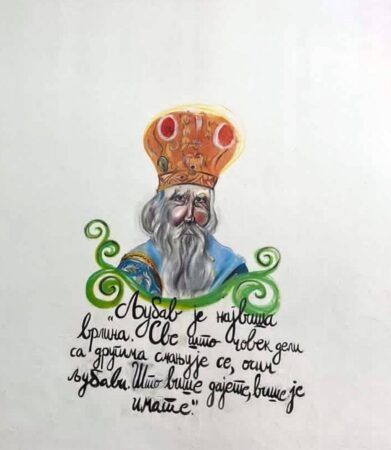 "Љубав је највиша
врлина. Све што човек дели
са другима смањује се, осим
љубави. Што више дајете, више је
имате."